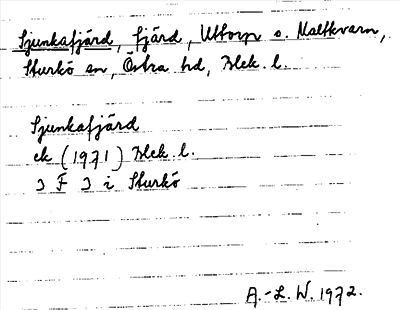 Sjunkafjärd, fjärd, Uttorp o. Maltkvarn,
Sturkö sn, Östra hd, Blek. l.
Sjunkafjärd
ek (1971) Blek. l.
3 F 3 i Sturkö
A.-L. W. 1972.